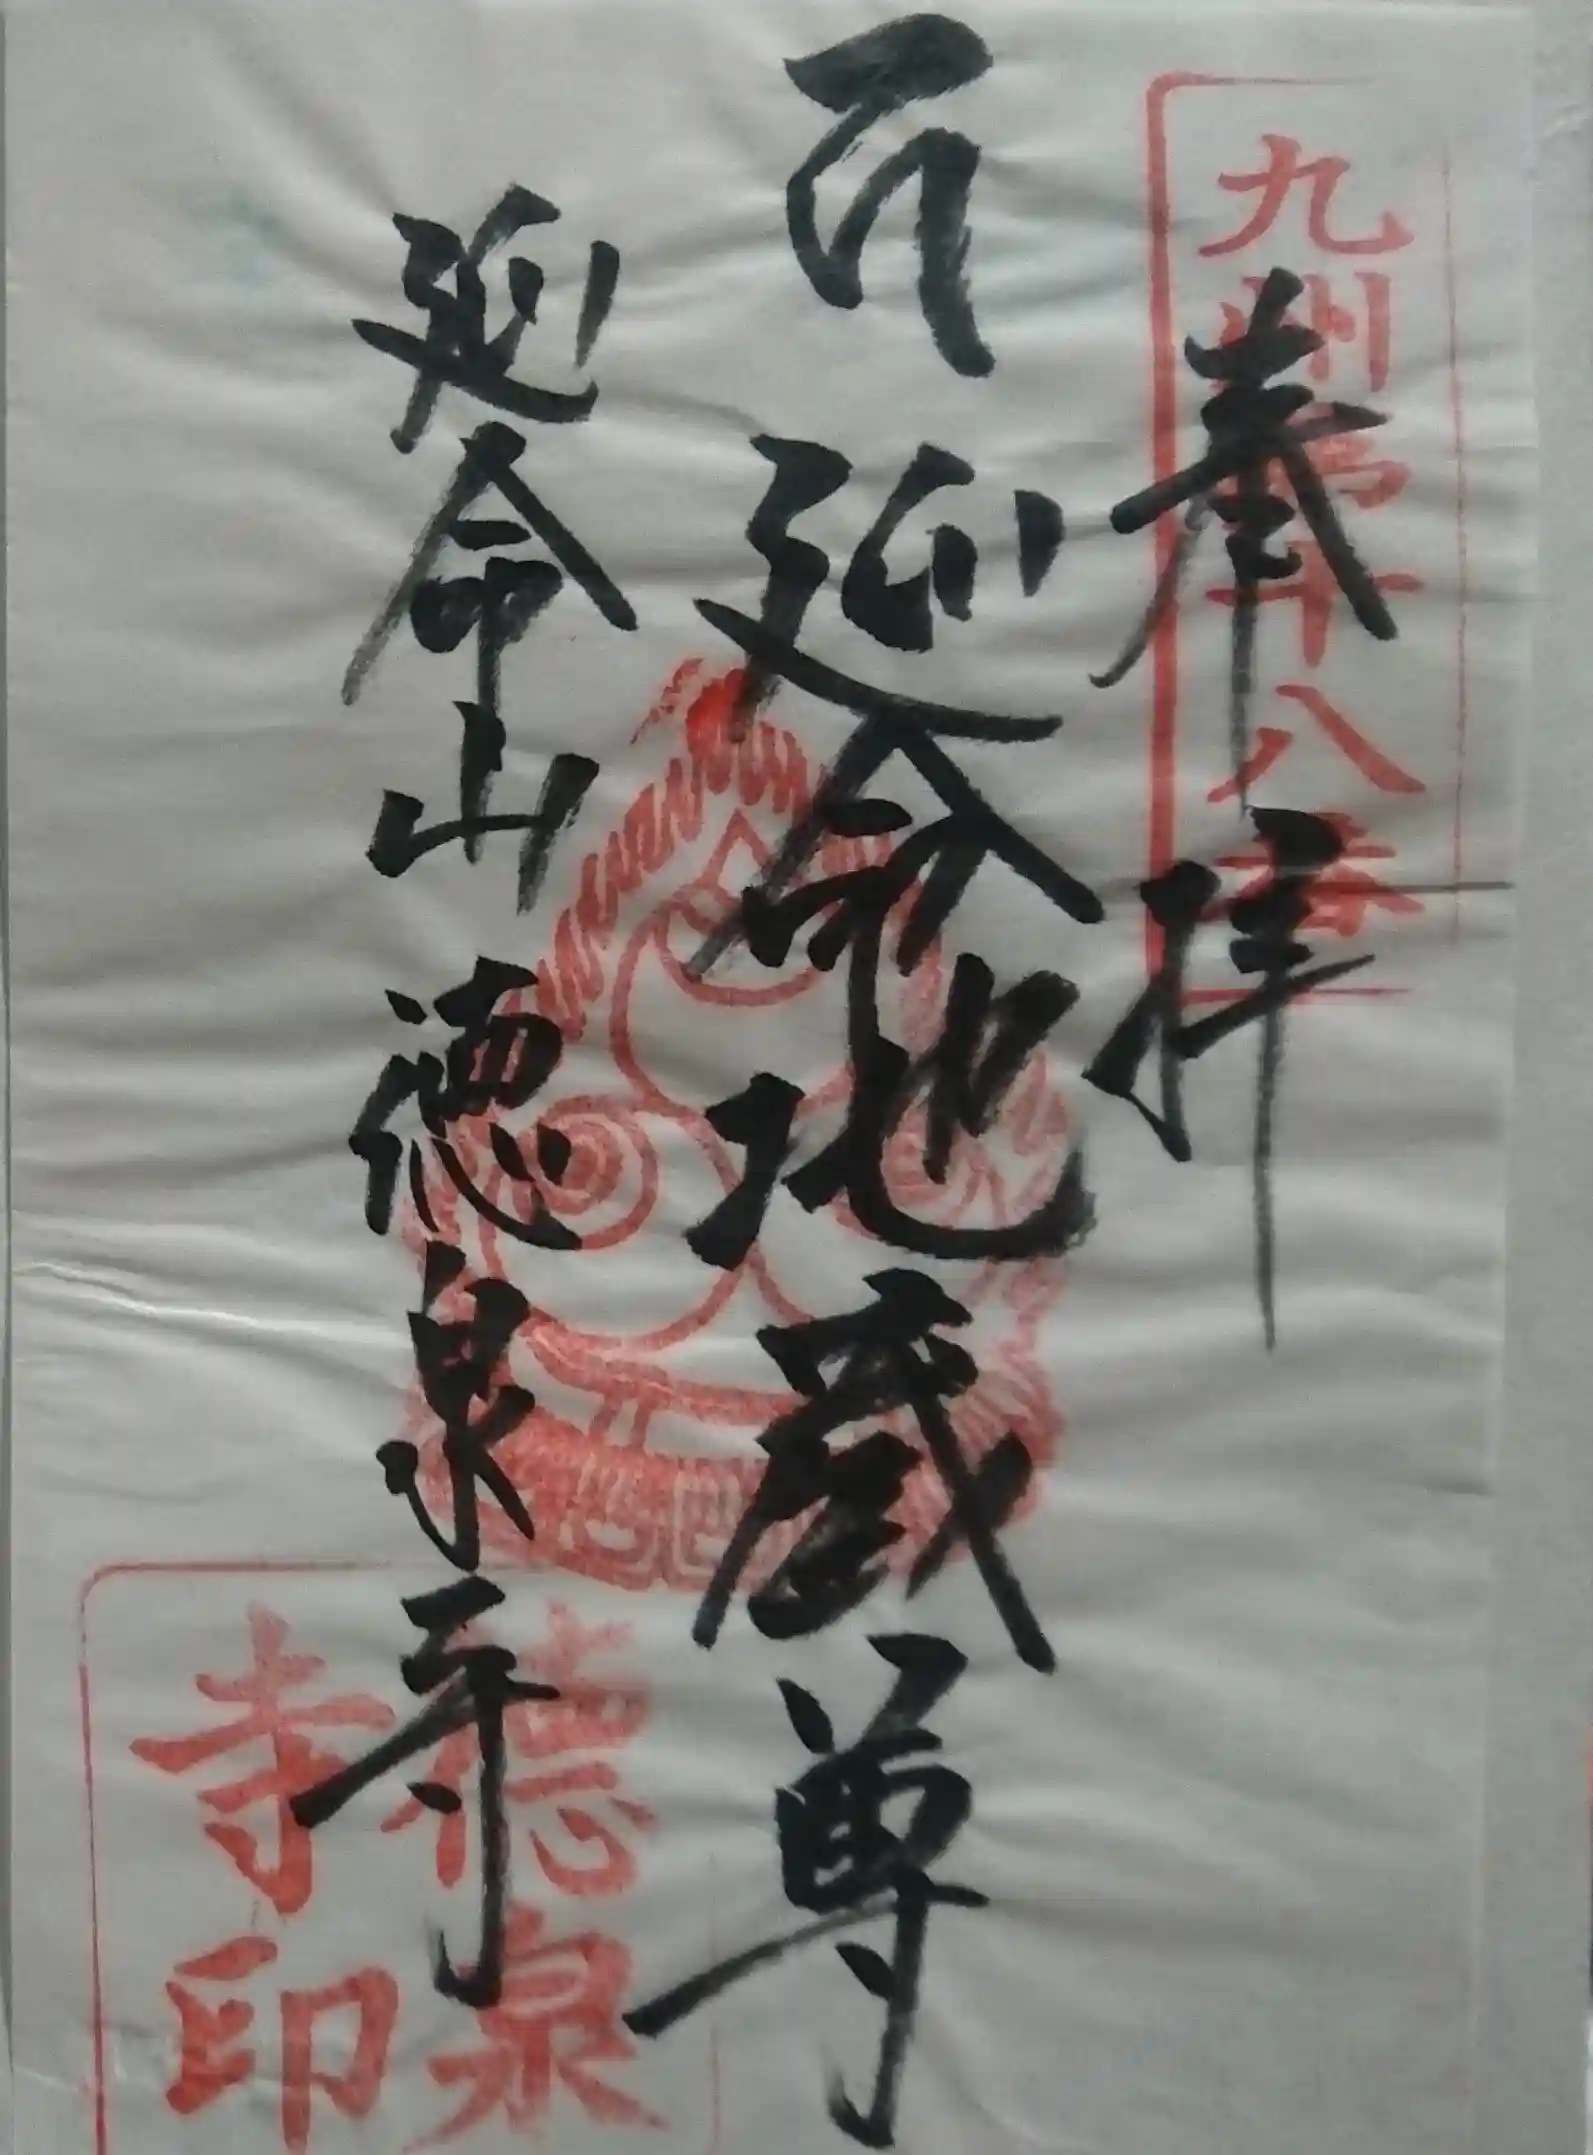 九州第十八番
奉拝
延命地蔵尊
延命山 徳泉寺
徳泉
寺印